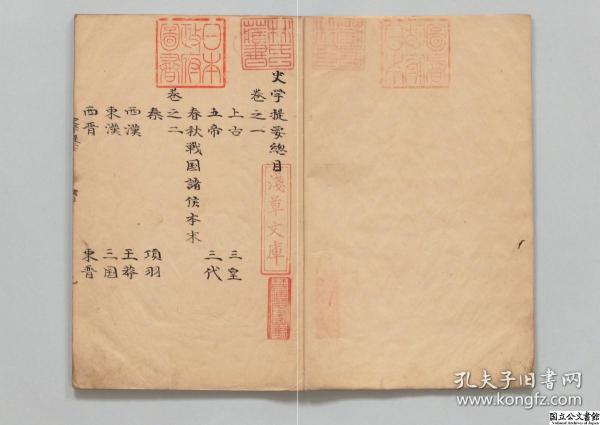 史学提要總目
卷之一
上古 三皇
五帝 三代
春秋戦国諸侯本末
卷之二
秦 項羽
西漢 王莽
東漢 三国
西晋 東晋
日本政府圖書
林氏藏書
淺草文庫
孔夫子旧书网
www.kongfz.com
国立公文書館
National Archives of Japan